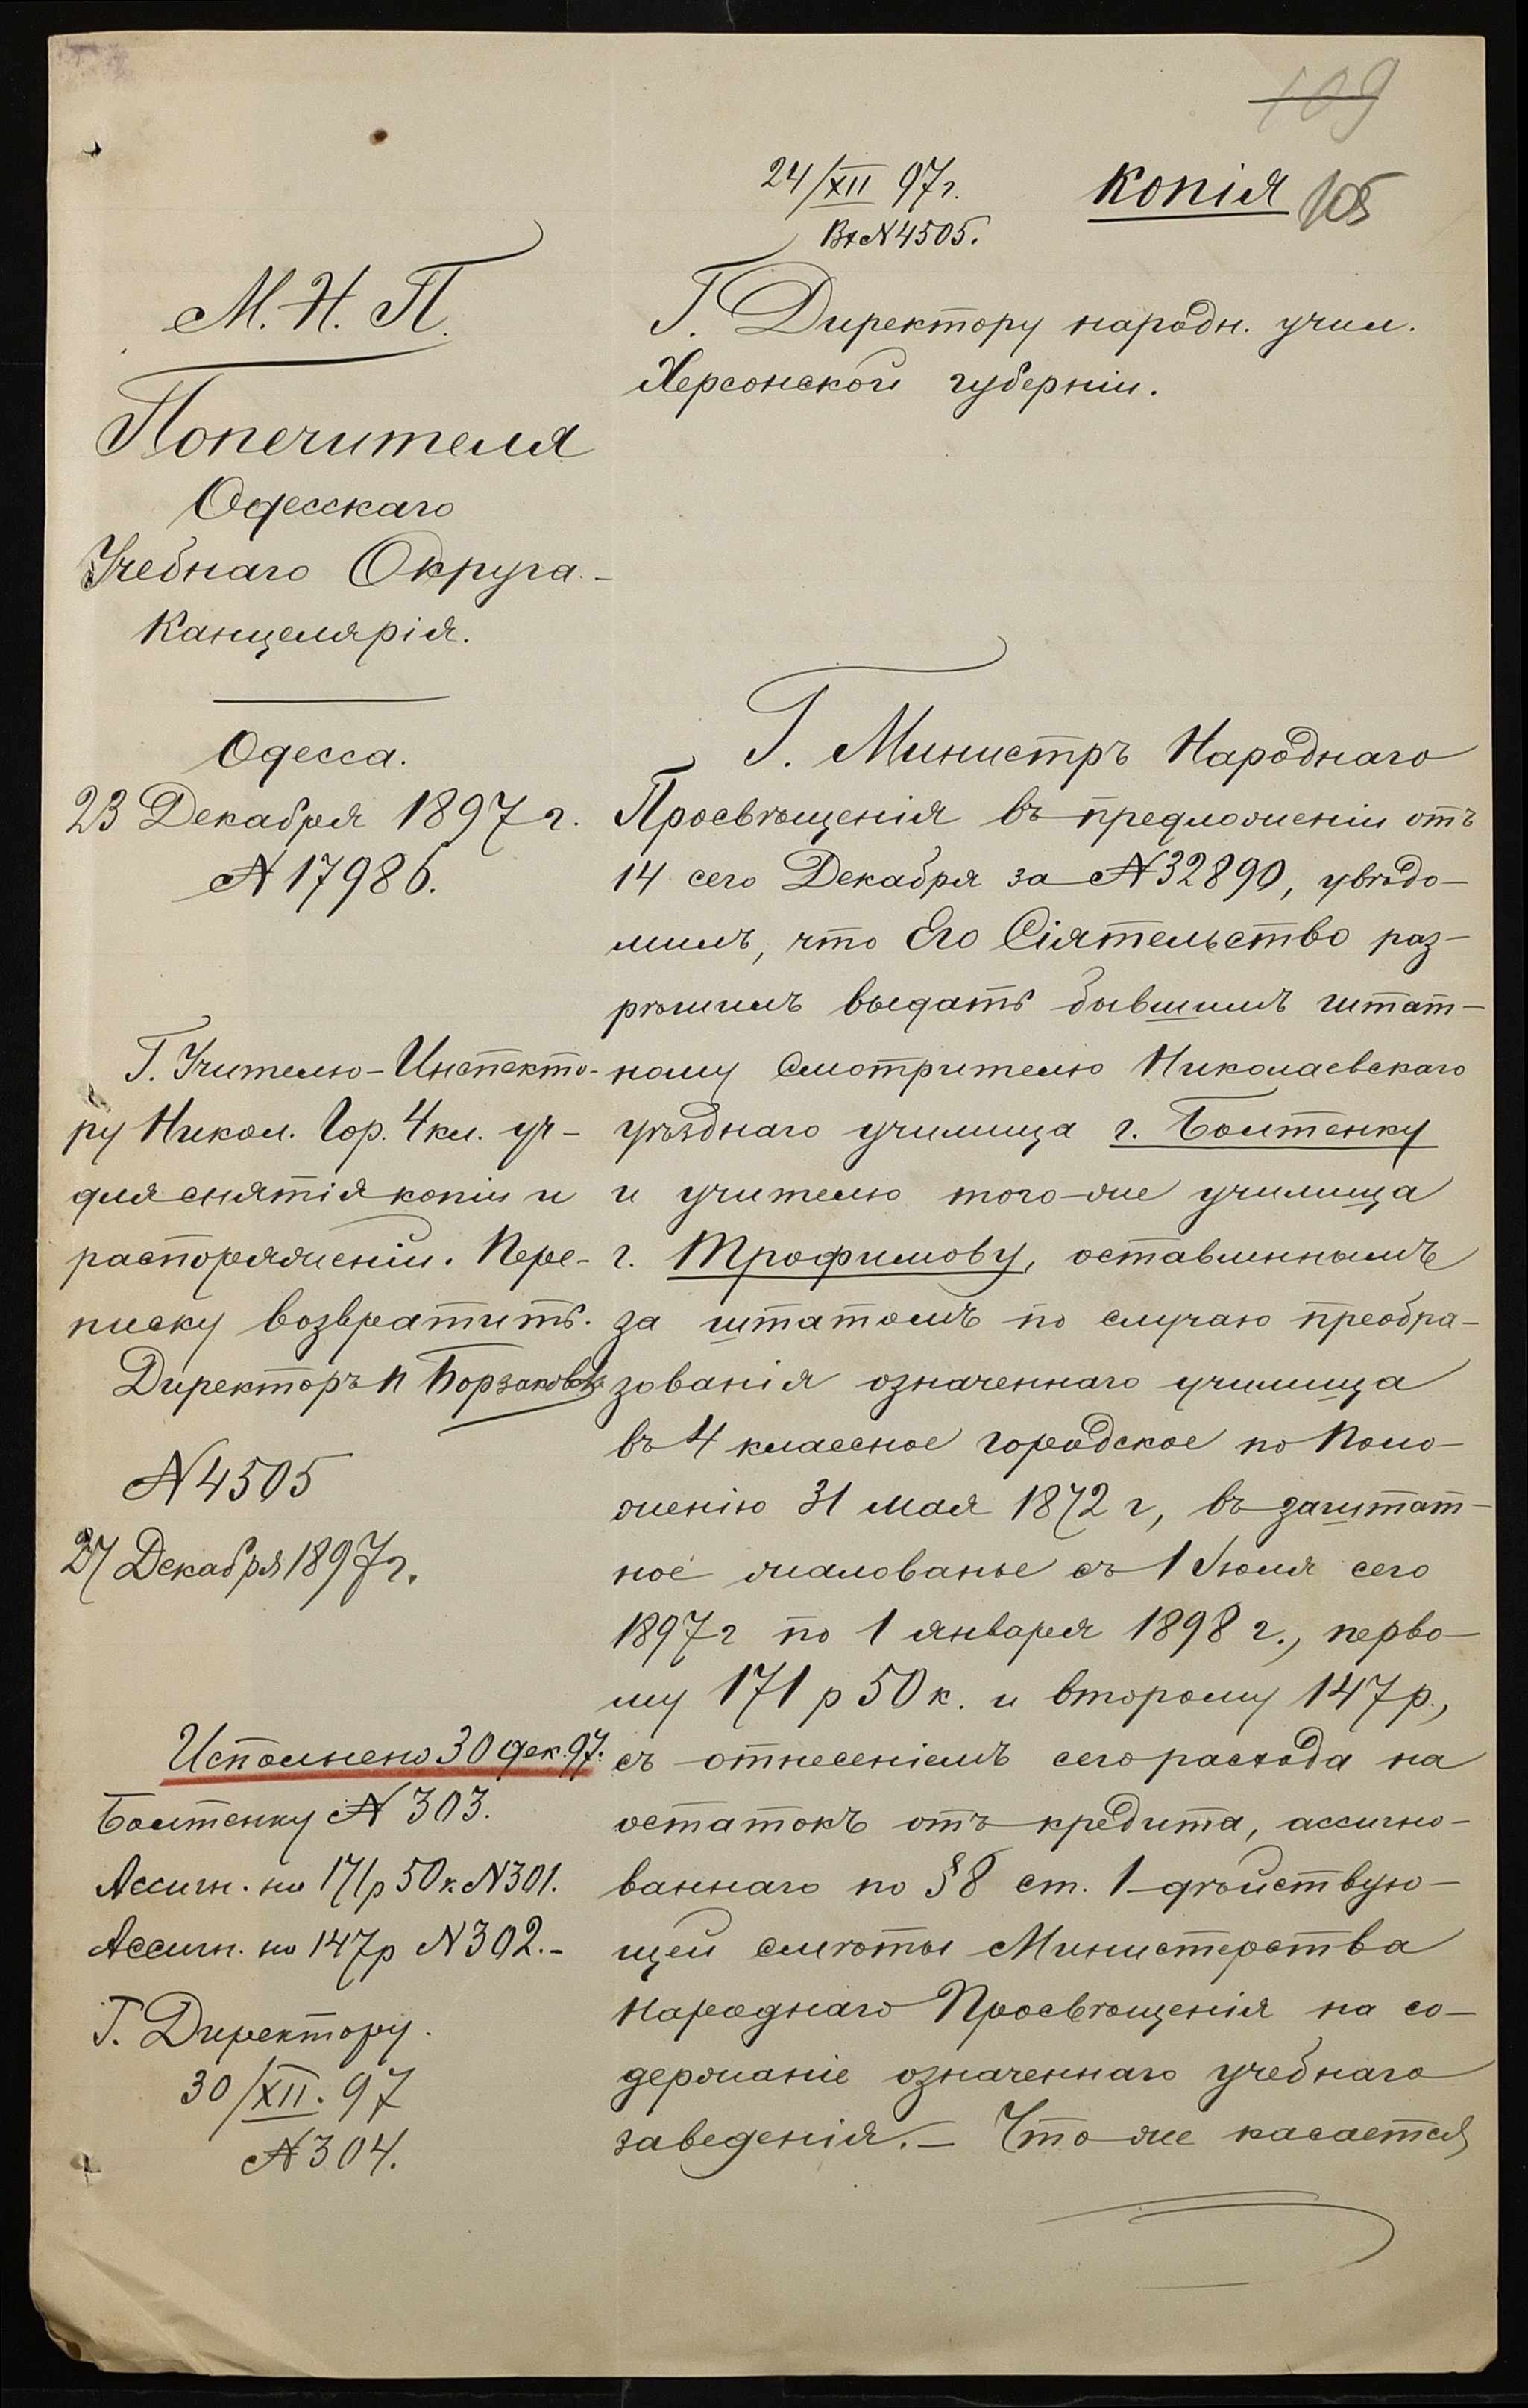 109
24/XII 97 г.
Вх N 4505.
Копія
105
М. Н. П.
Попечителя
Одесскаго
Учебнаго Округа.
Канцелярія.
Одесса.
23 Декабря 1897 г.
N 17986.
Г. Учителю-Инспекто-
ру Никол. Гор. 4 кл. уч-
для снятія копіи и
распоряженіи. Пере-
писку возвратить.
Директоръ
N 4505
27 Декабря 1897 г.
Исполнено 30 дек. 97.
Болтенку N 303.
Ассигн. на 171 р 50 к. N 301.
Ассигн. на 147 р N 302.-
Г. Директору.
30/XII. 97
N 304.
Г. Директору народн. учил.
Херсонской губерніи.
Г. Министръ Народнаго
Просвѣщенія въ предложеніи отъ
14 сего Декабря за N 32890, увѣдо-
милъ, что Его Сіятельство раз-
рѣшилъ выдать бывшимъ штат-
ному Смотрителю Николаевскаго
уѣзднаго училища г. Болтенку
и учителю того-же училища
г. Трофимову, оставленнымъ
за штатомъ по случаю преобра-
зованія означеннаго училища
въ 4 классное городское по Поло-
женію 31 мая 1872 г, въ заштат-
ное жалованье съ 1 Іюля сего
1897 г по 1 января 1898 г., перво-
му 171 р 50 к. и второму 147 р.,
съ отнесеніемъ сего расхода на
остатокъ отъ кредита, ассигно-
ваннаго по § 8 ст. 1 дѣйствую-
щей смѣты Министерства
Народнаго Просвѣщенія на со-
держаніе означеннаго учебнаго
заведенія.- Что же касается